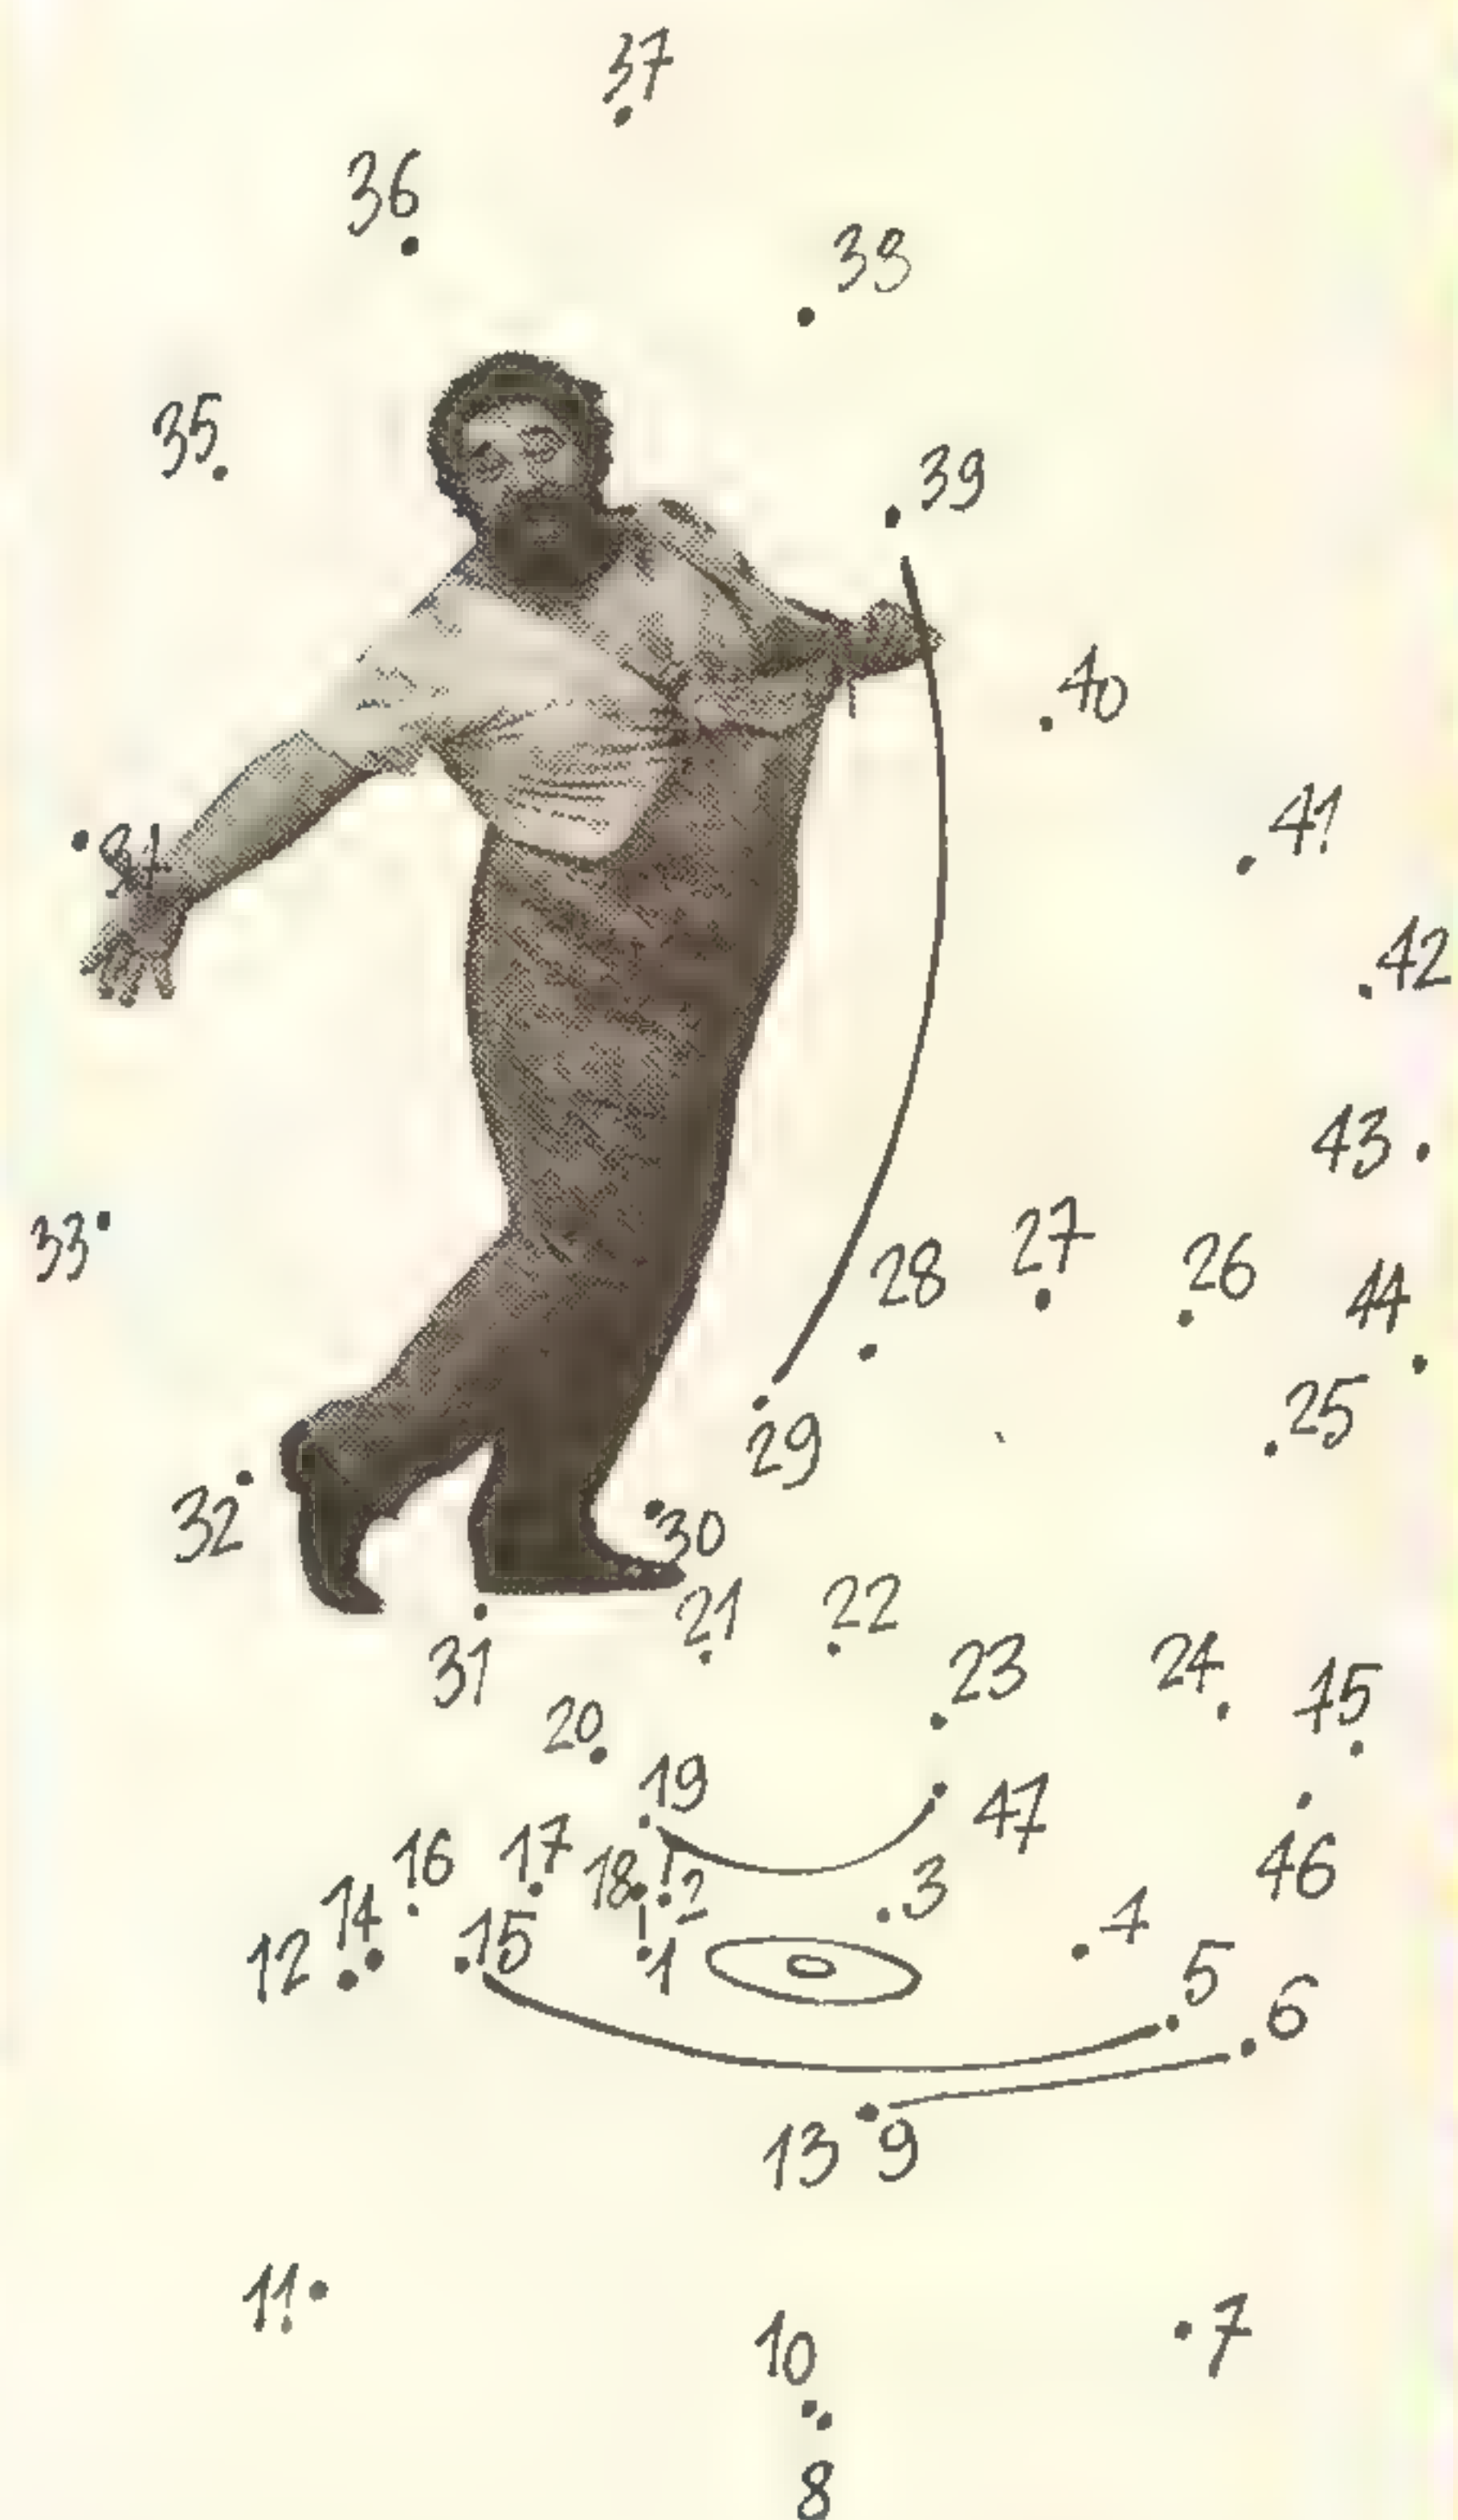 37
36
38
35
39
40
34
41
42
43
33
27
28
26
44
25
29
32
30
21
22
31
23
24
45
20
19
47
17
16
18
2
3
46
14
12
15
1
4
5
6
13
9
11
10
7
8